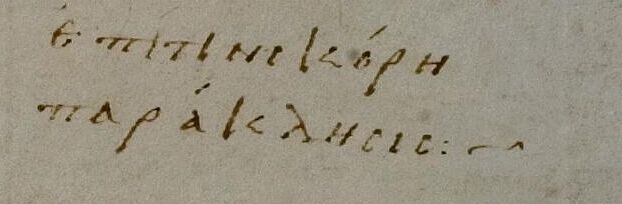 ἐπι τινι κόρη
παράκλησις:~